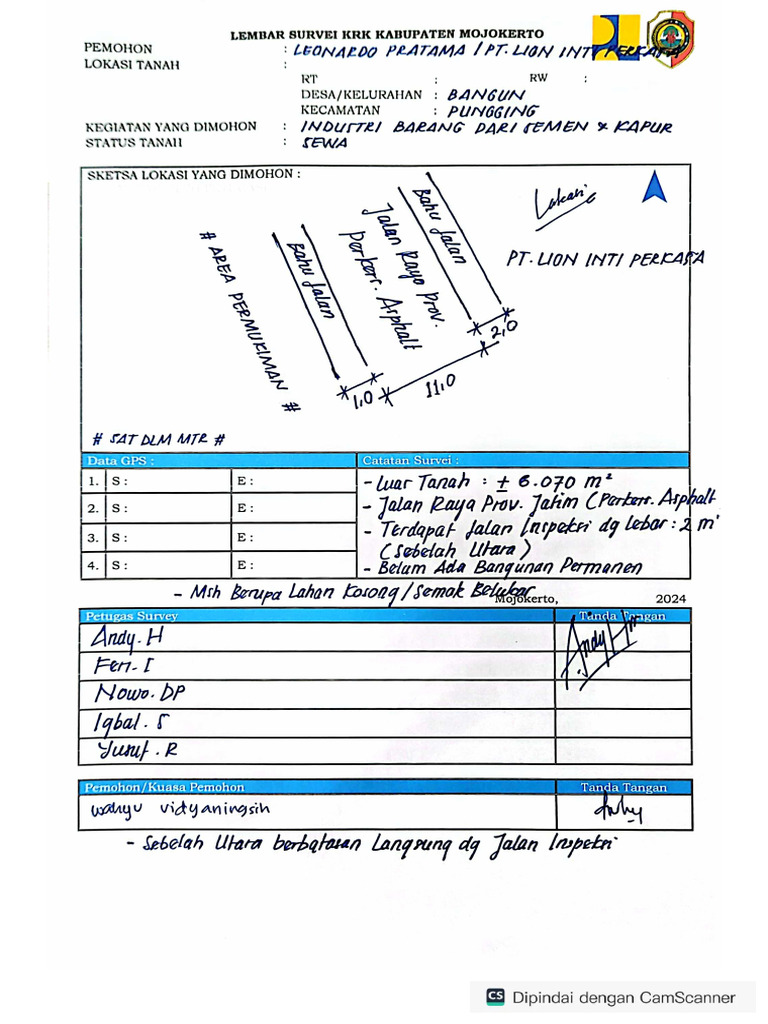 LEMBAR SURVEI KRK KABUPATEN MOJOKERTO
PEMOHON : LEONARDO PRATAMA / PT. LION INTI PERKASA
LOKASI TANAH :
RT : RW :
DESA/KELURAHAN : BANGUN
KECAMATAN : PUNGGING
KEGIATAN YANG DIMOHON : INDUSTRI BARANG DARI SEMEN & KAPUR
STATUS TANAH : SEWA
SKETSA LOKASI YANG DIMOHON :
# AREA PERMUKIMAN #
Bahu Jalan
Jalan Raya Prov.
Perkers. Asphalt
Bahu Jalan
Lokasi
PT. LION INTI PERKASA
1,0
11,0
2,0
# SAT DLM MTR #
Data GPS :
1. S : E :
2. S : E :
3. S : E :
4. S : E :
Catatan Survei :
- Luar Tanah : ± 6.070 m²
- Jalan Raya Prov. Jatim (Perkers. Asphalt
- Terdapat Jalan Inspeksi dg lebar : 2 m'
(Sebelah Utara)
- Belum Ada Bangunan Permanen
- Msh Berupa Lahan Kosong/Semak Belukar
Mojokerto, 2024
Petugas Survey Tanda Tangan
Andy. H
Andy H
Feri. I
Nowo. DP
Iqbal. S
Yusuf. R
Pemohon/Kuasa Pemohon Tanda Tangan
wahyu vidyaningsih
- Sebelah Utara berbatasan Langsung dg Jalan Inspeksi
CS Dipindai dengan CamScanner